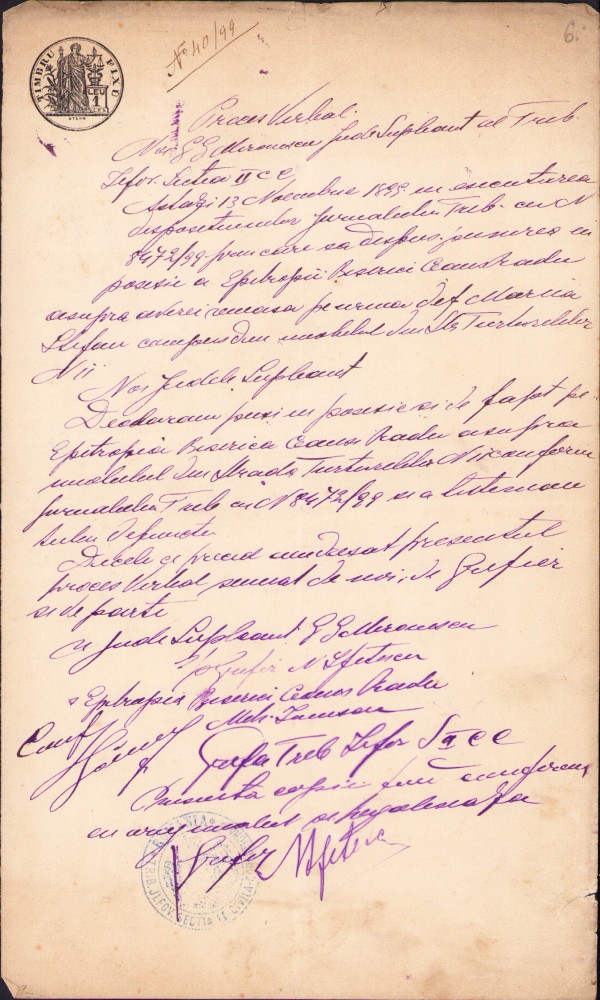 6.
No 40/99
TIMBRU FIX
LEU 1
Proces Verbal.
Noi G G Mironescu Jude Supleant al Trib.
Ilfov. Sectia II C C
Astăzi 13 Noembrie 1899 in executarea
dispositiunilor jurnalului Trib. cu N
8472/99 prin care sa dispus punerea in
posesie a Epitropii Biserici Ceaus Radu
asupra averei remasa pe urma Def Maria
Stefan compusa din imobilul din Str Turturelelor
N 11
Noi Judele Supleant
Declaram pusi in posesie si de fapt pe
Epitropia Biserica Ceaus Radu asupra
imobilul din Strada Turturelelor N 11 conform
jurnalului Trib cu N 8472/99 si a testamen
tului defuncti
Drept ce am dresat presentul
proces Verbal semnat de noi, de Grefier
si de parti
ss Jude Supleant G G Mironescu
Grefier N
s Epitropia Biserici Ceaus Radu
Conf
Grefa Trib Ilfov S II C C
Presenta copie fiind conforma
cu originalul se legaliseaza
Grefier
ROMANIA
TRIB. ILFOV. SECTIA II CIVILA